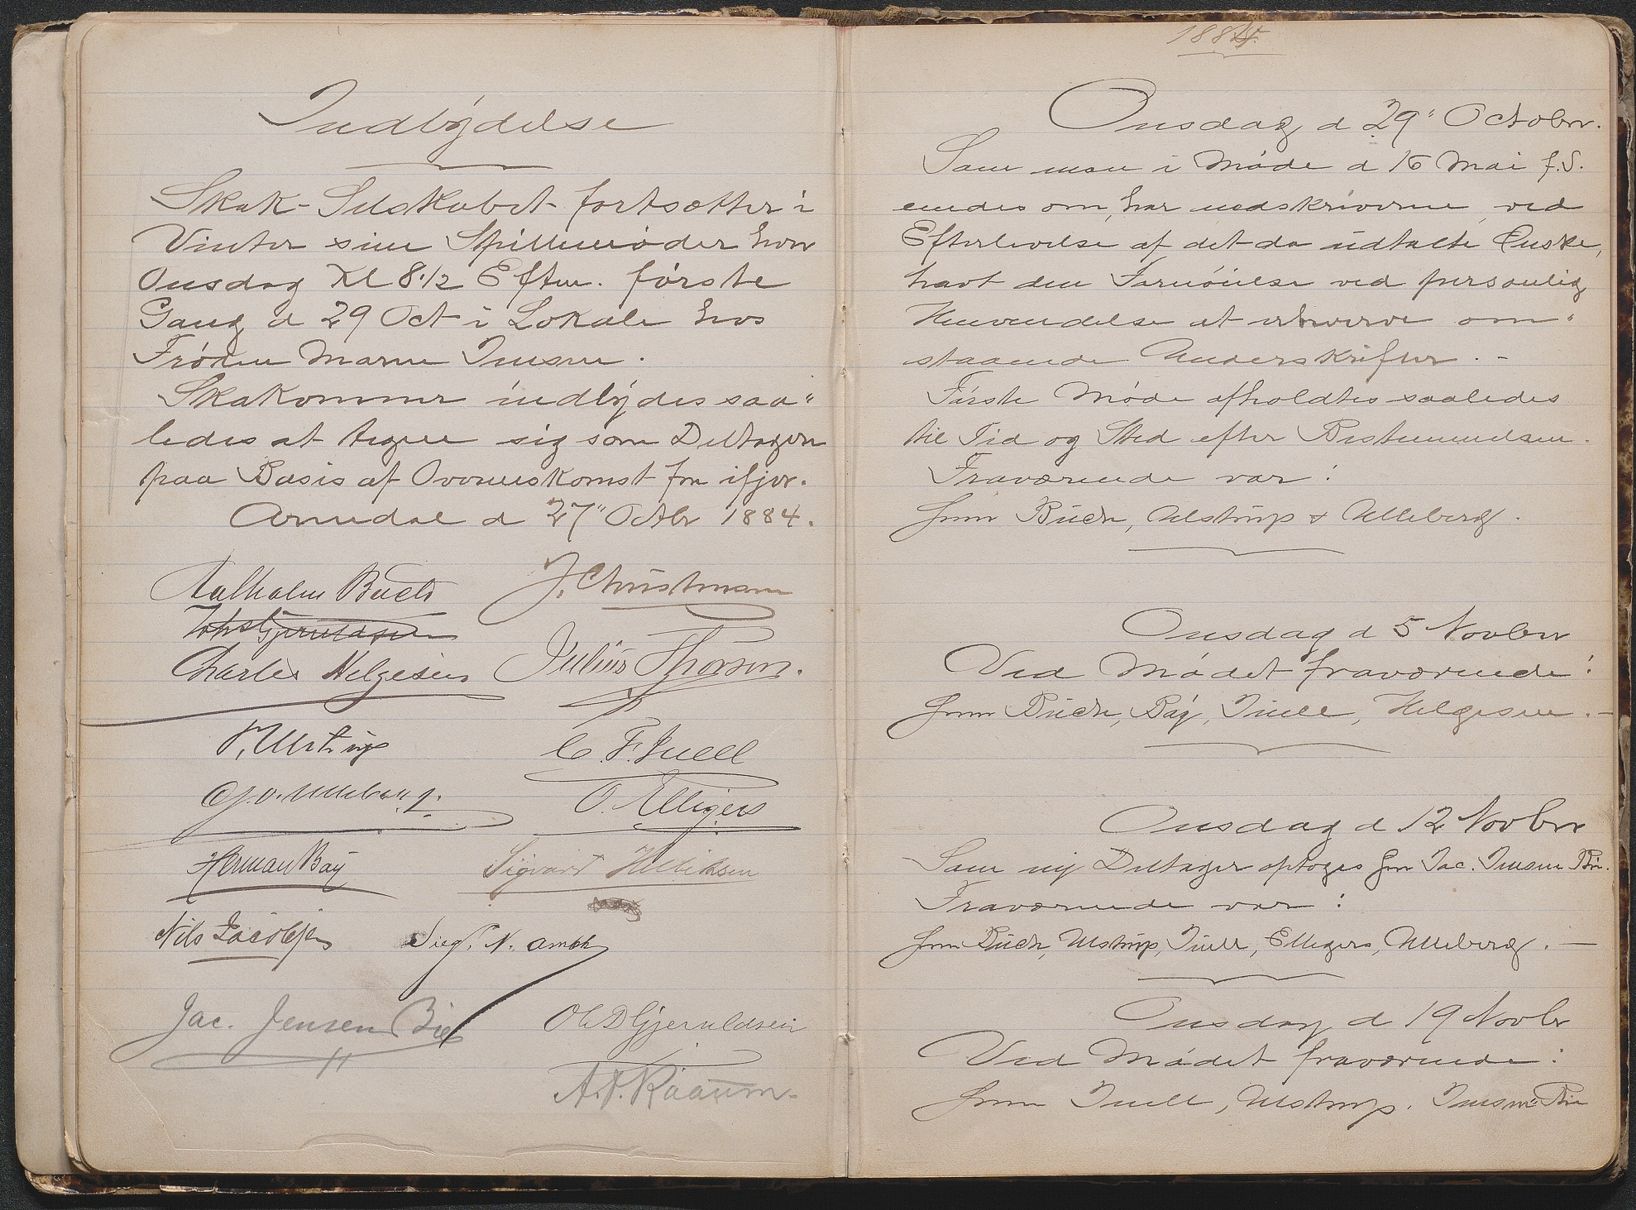 Indbydelse
Skak-Selskabet fortsætter i
Vinter sine Spillemøder hver
Onsdag Kl 8 1/2 Eftm. første
Gang d 29 Oct i Lokale hos
Frøken Maren Jensen.
Skakommer indbydes saa"
ledes at tegne sig som Deltagere
paa Basis af Overenskomst fra ifjor.
Arendal d 27" Octbr 1884.
Aalholm Buch J. Christmann
Charles Helgesen Julius Thorsen.
P. Ulstrup C. F. Juell
G. O. Ulleberg. O. Elligers
Herman Bay Sigvart Hendriksen
Nils Jacobsen Sieg. N.
Jac. Jensen Bie Ole D Gjeruldsen
A. J. Raaum.
1884.
Onsdag d 29" October.
Som man i Møde d 16 Mai f. S.
enedes om, har nedskriverne ved
Efterlevelse af det da udtalte Ønske,
havt den Fornøielse ved personlig
Henvendelse at erhverve om"
staaende Underskrifter. -
Første Møde afholdtes saaledes
til Tid og Sted efter Bestemmelsen.
Fraværende var:
Herrer Buch, Ulstrup & Ulleberg.
Onsdag d 5 Novbr
Ved Mødet fraværende:
Herrer Buch, Bay, Juell, Helgesen. -
Onsdag d 12 Novbr
Som ny Deltager optoges Herr Jac. Jensen Bie.
Fraværende var:
Herrer Buch, Ulstrup, Juell, Elligers, Ulleberg. -
Onsdag d 19 Novbr
Ved Mødet fraværende:
Herrer Juell, Ulstrup, Jensen Bie